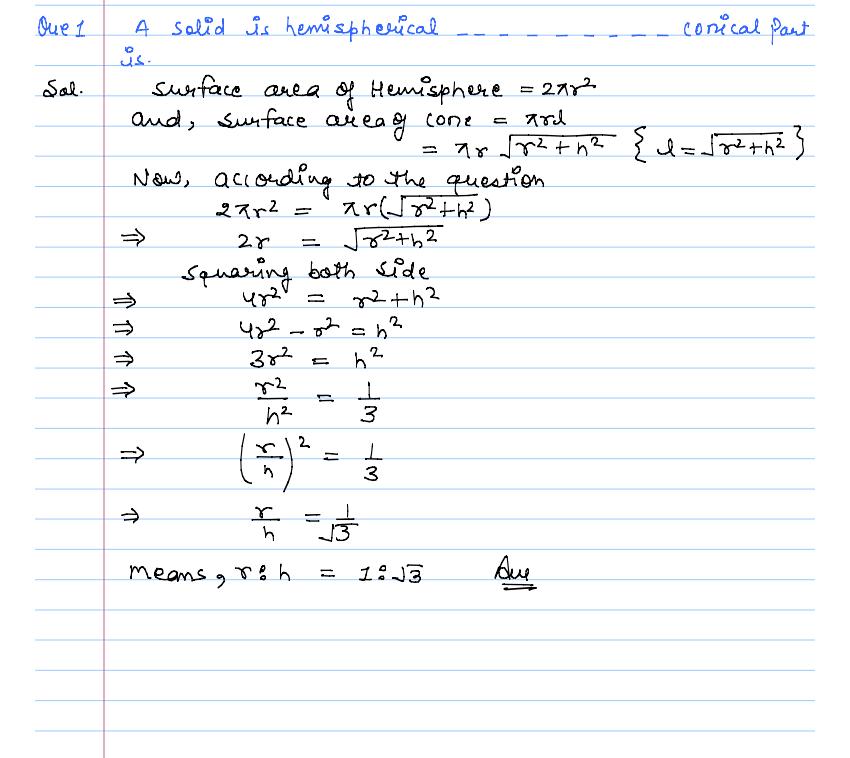 Que 1 A solid is hemispherical _ _ _ _ _ _ _ _ _ conical part
is.
Sol. Surface area of Hemisphere = 2πr²
and, surface area of cone = πrl
= πr √(r²+h²) { l = √(r²+h²) }
Now, according to the question
2πr² = πr(√(r²+h²))
⇒ 2r = √(r²+h²)
Squaring both side
⇒ 4r² = r²+h²
⇒ 4r² - r² = h²
⇒ 3r² = h²
⇒ r²/h² = 1/3
⇒ (r/h)² = 1/3
⇒ r/h = 1/√3
means, r:h = 1:√3 Ans